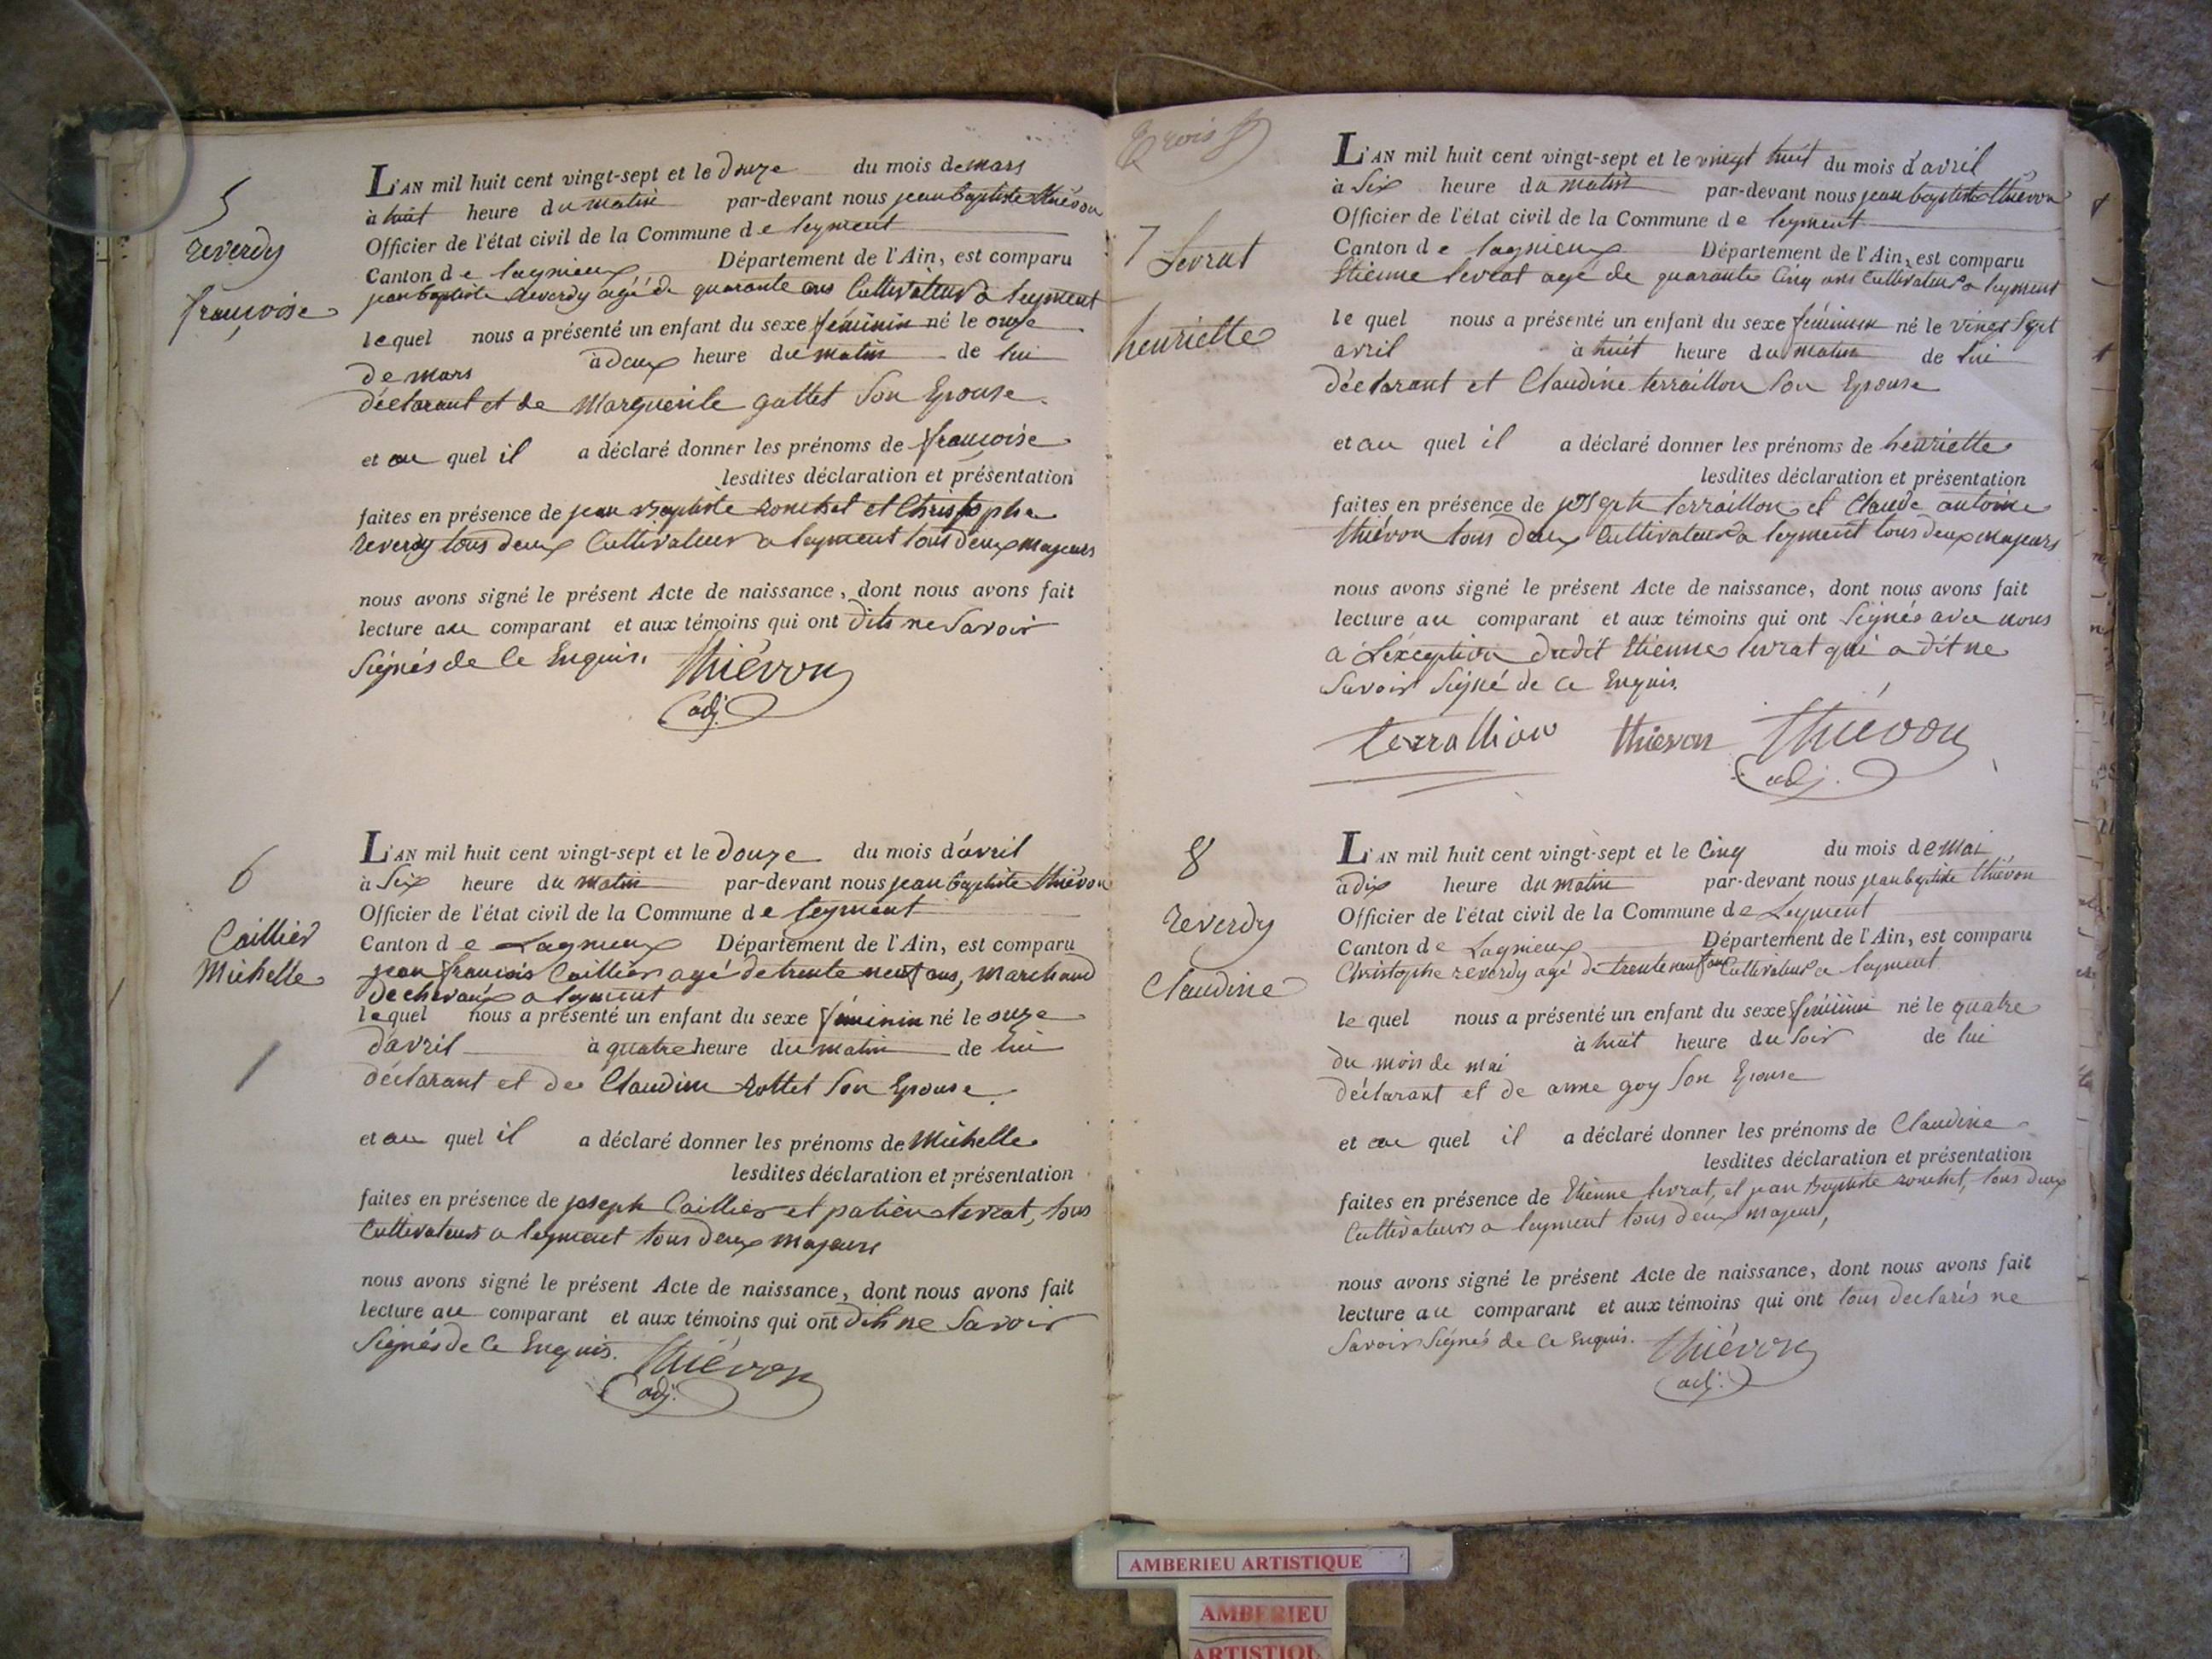 5
reverdy
françoise
L'AN mil huit cent vingt-sept et le douze du mois de mars
à huit heure du matin par-devant nous jean baptiste thiévon
Officier de l'état civil de la Commune de leyment
Canton de lagnieux Département de l'Ain, est comparu
jean baptiste reverdy agé de quarante ans Cultivateur a leyment
lequel nous a présenté un enfant du sexe féminin né le onze
de mars à deux heure du matin de lui
déclarant et de Marguerite gattet Son Epouse.
et au quel il a déclaré donner les prénoms de françoise
lesdites déclaration et présentation
faites en présence de jean Baptiste ronchet et Christophe
reverdy tous deux Cultivateur a leyment tous deux majeurs
nous avons signé le présent Acte de naissance, dont nous avons fait
lecture au comparant et aux témoins qui ont dits ne Savoir
Signés de Ce Enquis. thiévon
adj.
6
Caillier
Michelle
L'AN mil huit cent vingt-sept et le douze du mois d'avril
à Six heure du matin par-devant nous jean baptiste thiévon
Officier de l'état civil de la Commune de leyment
Canton de Lagnieux Département de l'Ain, est comparu
jean françois Caillier agé de trente neuf ans, Marchand
de chevaux a leyment
lequel nous a présenté un enfant du sexe féminin né le onze
d'avril à quatre heure du matin de lui
déclarant et de Claudine rottet Son Epouse.
et au quel il a déclaré donner les prénoms de Michelle
lesdites déclaration et présentation
faites en présence de joseph Caillier et levrat, tous
Cultivateurs a leyment tous deux majeurs
nous avons signé le présent Acte de naissance, dont nous avons fait
lecture au comparant et aux témoins qui ont dits ne Savoir
Signés de Ce Enquis. thiévon
adj.
trois
7 Levrat
henriette
L'AN mil huit cent vingt-sept et le vingt huit du mois d'avril
à Six heure du matin par-devant nous jean baptiste thiévon
Officier de l'état civil de la Commune de leyment
Canton de lagnieux Département de l'Ain, est comparu
Etienne levrat agé de quarante Cinq ans Cultivateur a leyment
le quel nous a présenté un enfant du sexe féminin né le vingt Sept
avril à huit heure du matin de lui
déclarant et Claudine terraillon Son Epouse
et au quel il a déclaré donner les prénoms de henriette
lesdites déclaration et présentation
faites en présence de joseph terraillon et Claude antoine
thiévon tous deux Cultivateur a leyment tous deux majeurs
nous avons signé le présent Acte de naissance, dont nous avons fait
lecture au comparant et aux témoins qui ont Signés avec nous
a L'exception dudit Etienne levrat qui a dit ne
Savoir Signé de Ce Enquis.
terrallion thievon thiévon
adj.
8
reverdy
Claudine
L'AN mil huit cent vingt-sept et le Cinq du mois de Mai
à dix heure du matin par-devant nous jean baptiste thiévon
Officier de l'état civil de la Commune de Leyment
Canton de Lagnieux Département de l'Ain, est comparu
Christophe reverdy agé de trente neuf ans Cultivateur a leyment
le quel nous a présenté un enfant du sexe féminin né le quatre
du mois de mai à huit heure du Soir de lui
déclarant et de anne goy Son Epouse
et au quel il a déclaré donner les prénoms de Claudine
lesdites déclaration et présentation
faites en présence de Etienne levrat, et jean Baptiste ronchet, tous deux
Cultivateurs a leyment tous deux majeurs,
nous avons signé le présent Acte de naissance, dont nous avons fait
lecture au comparant et aux témoins qui ont tous déclarés ne
Savoir Signés de Ce Enquis. thiévon
adj.
AMBERIEU ARTISTIQUE
AMBERIEU
ARTISTIQU